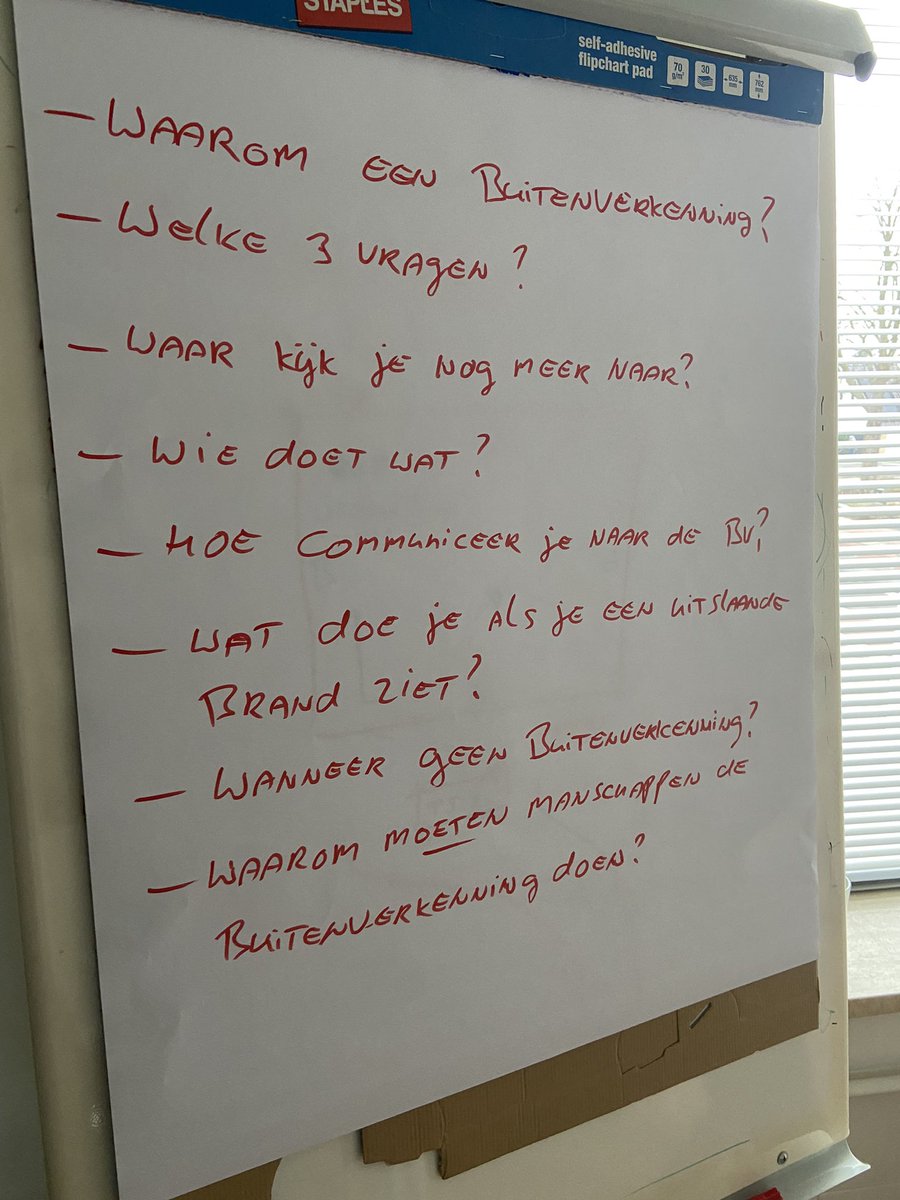 STAPLES
self-adhesive
flipchart pad
70 g/m²
30
635 mm
762 mm
- WAAROM EEN BUITENVERKENNING?
- WELKE 3 VRAGEN?
- WAAR KIJK JE NOG MEER NAAR?
- WIE DOET WAT?
- HOE COMMUNICEER JE NAAR DE BV?
- WAT DOE JE ALS JE EEN UITSLAANDE
BRAND ZIET?
- WANNEER GEEN BUITENVERKENNING?
- WAAROM MOETEN MANSCHAPPEN DE
BUITENVERKENNING DOEN?